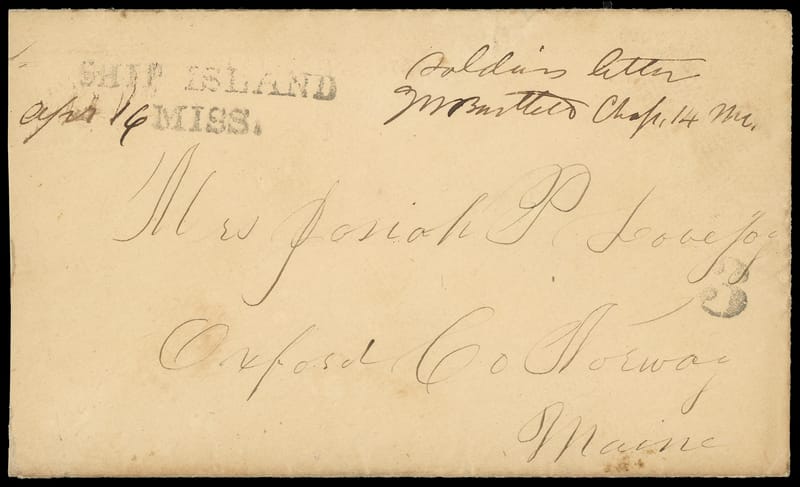 SHIP ISLAND
MISS.
apr 16
soldiers letter
Bartlett Chap. 14 Me.
Mrs Josiah P Lovejoy
3
Oxford Co Norway
Maine